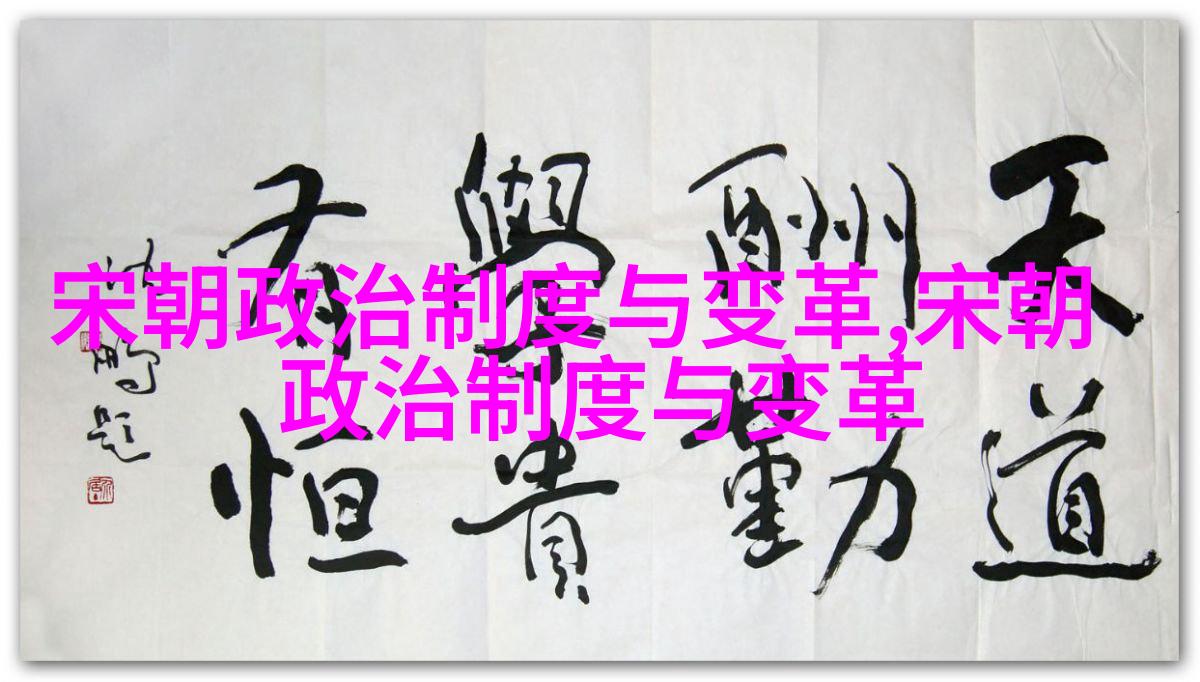 宋朝政治制度与变革,宋朝
政治制度与变革
天道
酬勤
學貴
有恒
沈鹏题